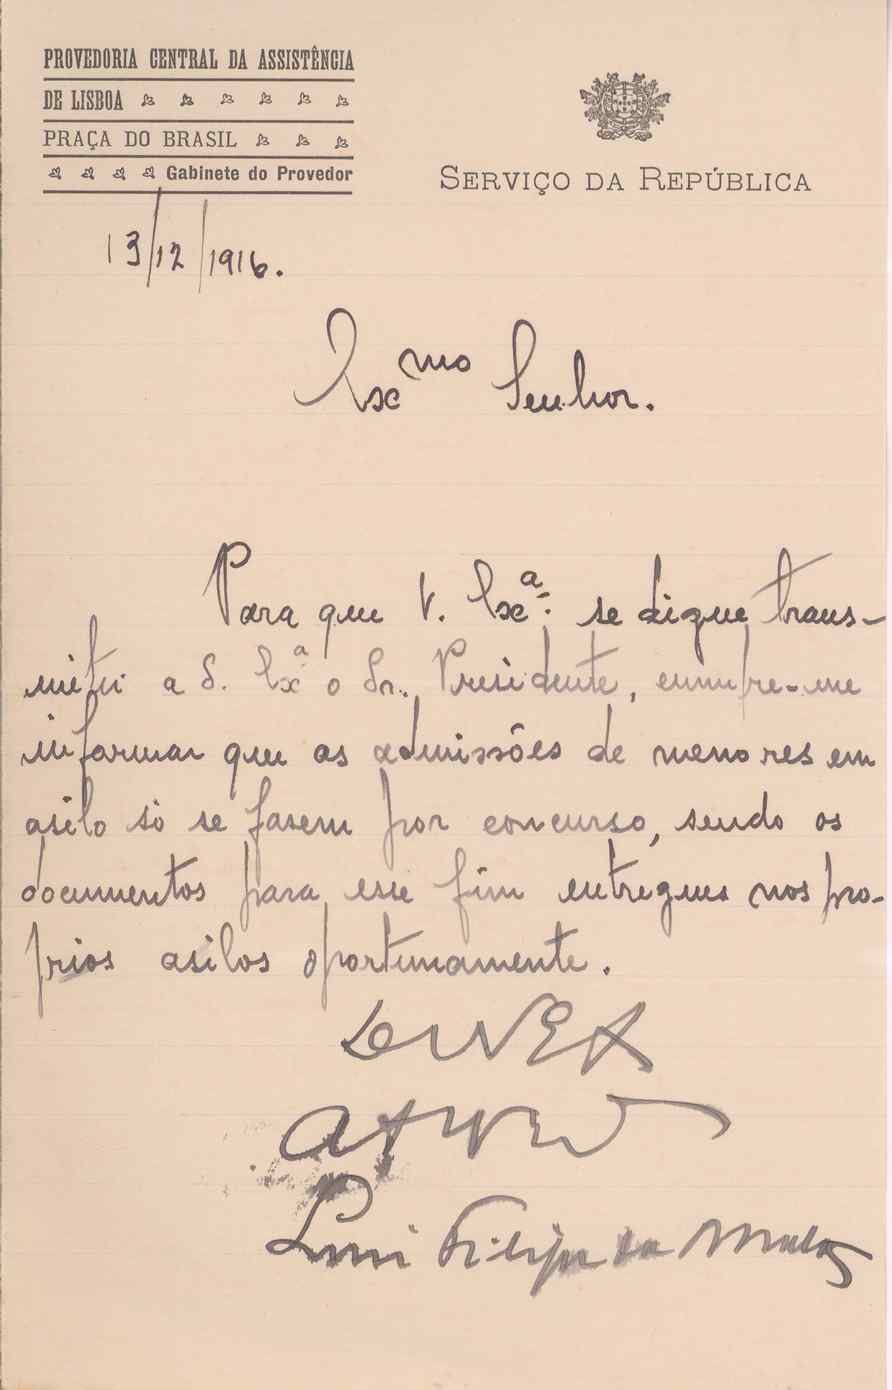 PROVEDORIA CENTRAL DA ASSISTÊNCIA
DE LISBOA
PRAÇA DO BRASIL
Gabinete do Provedor
SERVIÇO DA REPÚBLICA
13/12/1916.
Exmo Senhor.
Para que V. Exa. se digne trans-
mitir a S. Exa o Sr. Presidente, cumpre-me
informar que as admissões de menores em
asilo só se fasem por concurso, sendo os
documentos para esse fim entregues nos pro-
prios asilos oportunamente.
De V. Exa
Luis Filipe da Mata